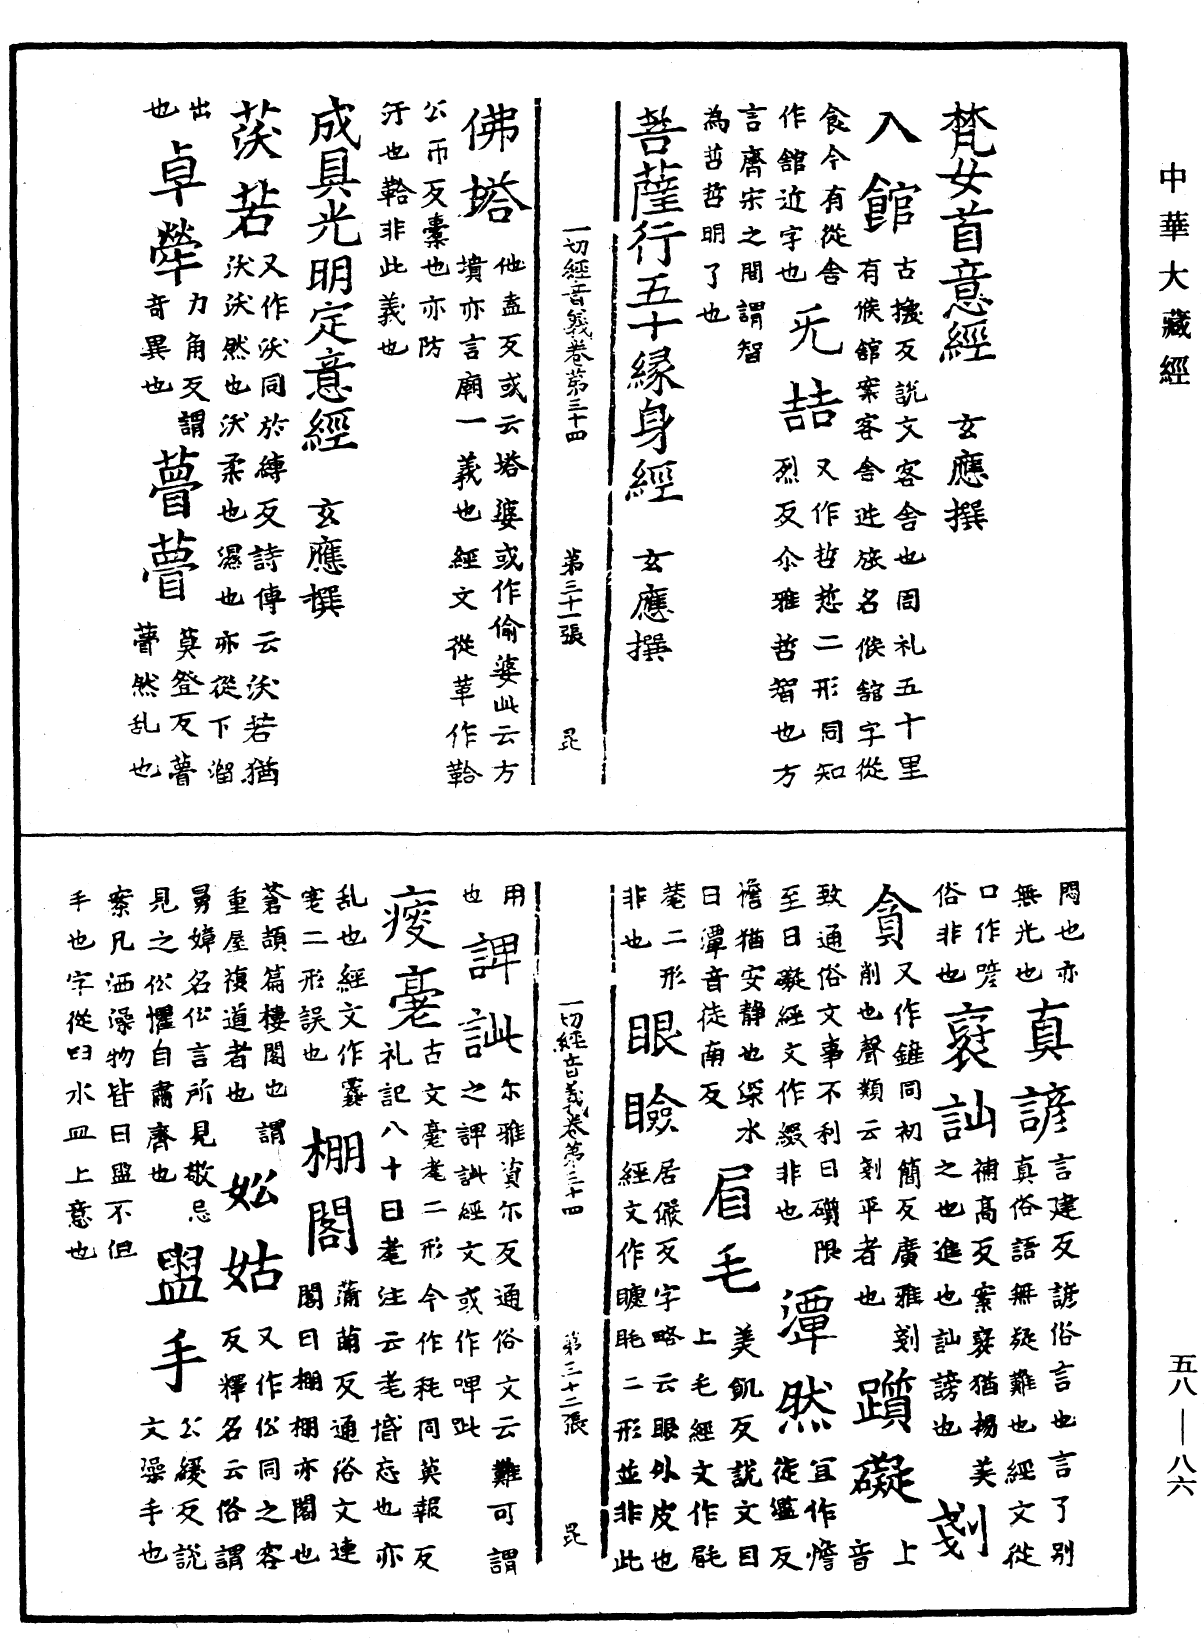 中華大藏經
梵女首意經　玄應撰
入館　古換反說文客舍也周礼五十里有候館案客舍逆旅名候館字從
食今有從舍作舘近字也　旡喆　又作哲悊二形同知烈反尒雅哲智也方
言齊宋之間謂智為哲哲明了也
菩薩行五十緣身經　玄應撰
一切經音義卷第三十四　第三十一張　昆
佛塔　他盍反或云塔婆或作偷婆此云方墳亦言廟一義也經文從革作鞈
公帀反橐也亦防汗也鞈非此義也
成具光明定意經　玄應撰
茯若　又作沃同於縛反詩傳云沃若猶沃沃然也沃柔也濕也亦從下溜
出也　卓犖　力角反謂奇異也　瞢瞢　莫登反瞢瞢然乱也
悶也亦無光也　真諺　言建反諺俗言也言了別真俗語無疑難也經文從
口作喭俗非也　裦訕　補高反案裦猶揚美之也進也訕謗也　剗
貪　又作鏟同初簡反廣雅剗削也聲類云剗平者也　躓礙　上音
致通俗文事不利曰躓限至曰礙經文作綴非也　潭然　宜作憺徒濫反
憺猶安靜也深水曰潭音徒南反　眉毛　美飢反說文目上毛經文作髭
菴二形非也　眼瞼　居儼反字略云眼外皮也經文作睫毦二形並非此
一切經音義卷第三十四　第三十二張　昆
用也　諀訿　尒雅資尒反通俗文云難可謂之諀訿經文或作呻呲
㾕耄　古文耄耄二形今作耗同莫報反礼記八十曰耄注云耄惛忘也亦
乱也經文作㝈㝈二形誤也　棚閣　蒲萠反通俗文連閣曰棚棚亦閣也
蒼頡篇樓閣也謂重屋複道者也　妐姑　又作伀同之容反釋名云俗謂
舅嫜名伀言所見敬忌見之伀懼自肅齊也　盥手　公緩反說文澡手也
案凡洒澡物皆曰盥不但手也字從臼水皿上意也
五八—八六